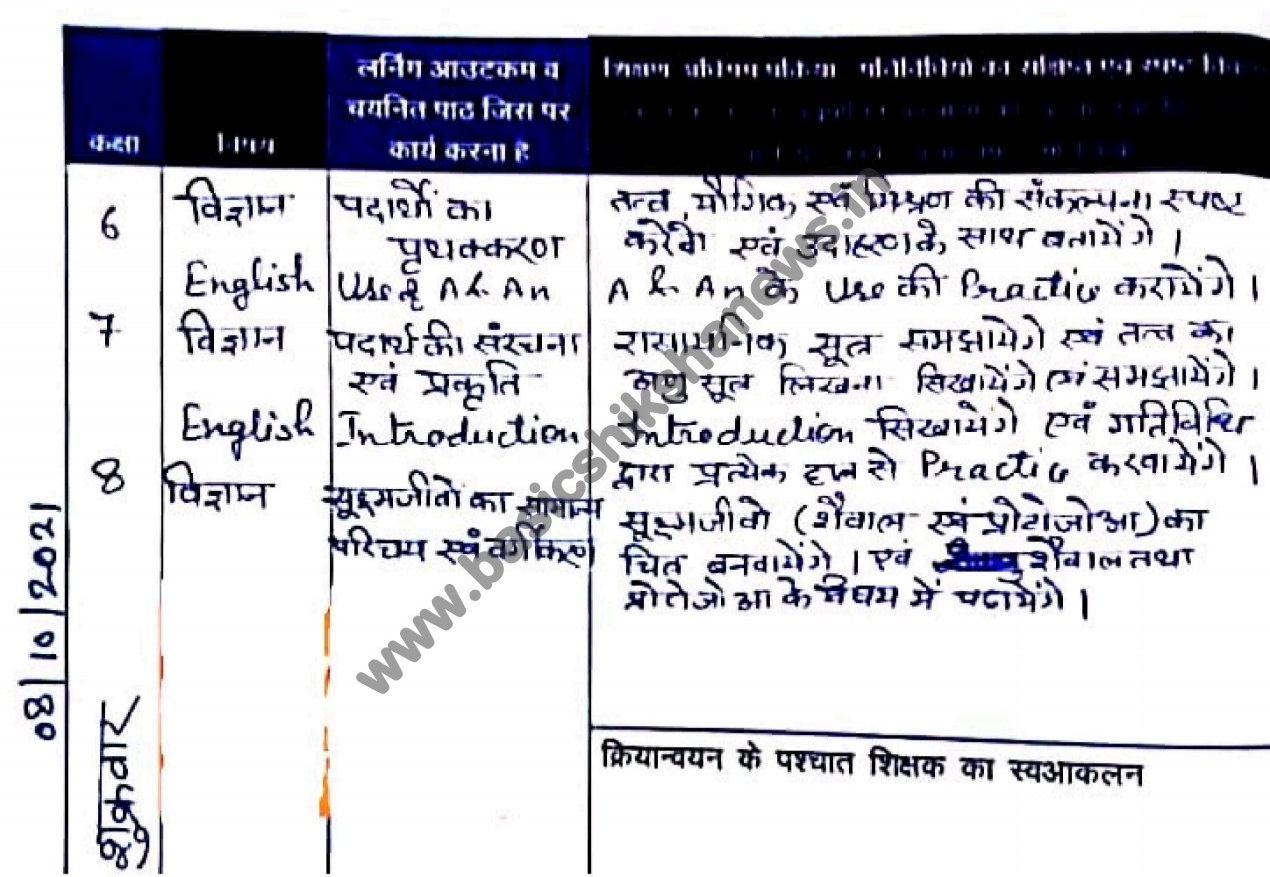 लर्निंग आउटकम व
चयनित पाठ जिस पर
कार्य करना है
कक्षा
विषय
6 विज्ञान पदार्थो का तत्व, यौगिक एवं मिश्रण की संकल्पना स्पष्ट
पृथक्करण करेंगे एवं उदाहरण के साथ बतायेंगे ।
English Use of A & An A & An के Use की Practic करायेंगे ।
7 विज्ञान पदार्थ की संरचना रासायनिक सूत्र समझायेंगे एवं तत्व का
एवं प्रकृति अणु सूत्र लिखना सिखायेंगे एवं समझायेंगे ।
English Introduction Introduction सिखायेंगे एवं गतिविधि
द्वारा प्रत्येक छात्र से Practic करवायेंगे ।
8 विज्ञान सूक्ष्मजीवो का सामान्य सूक्ष्मजीवो (शैवाल एवं प्रोटोजोआ) का
परिचय एवं वर्गीकरण चित्र बनवायेंगे । एवं शैवाल तथा
प्रोटोजोआ के विषय में पढायेंगे ।
08/10/2021
शुक्रवार
क्रियान्वयन के पश्चात शिक्षक का स्वआकलन
www.basicshikshanews.in